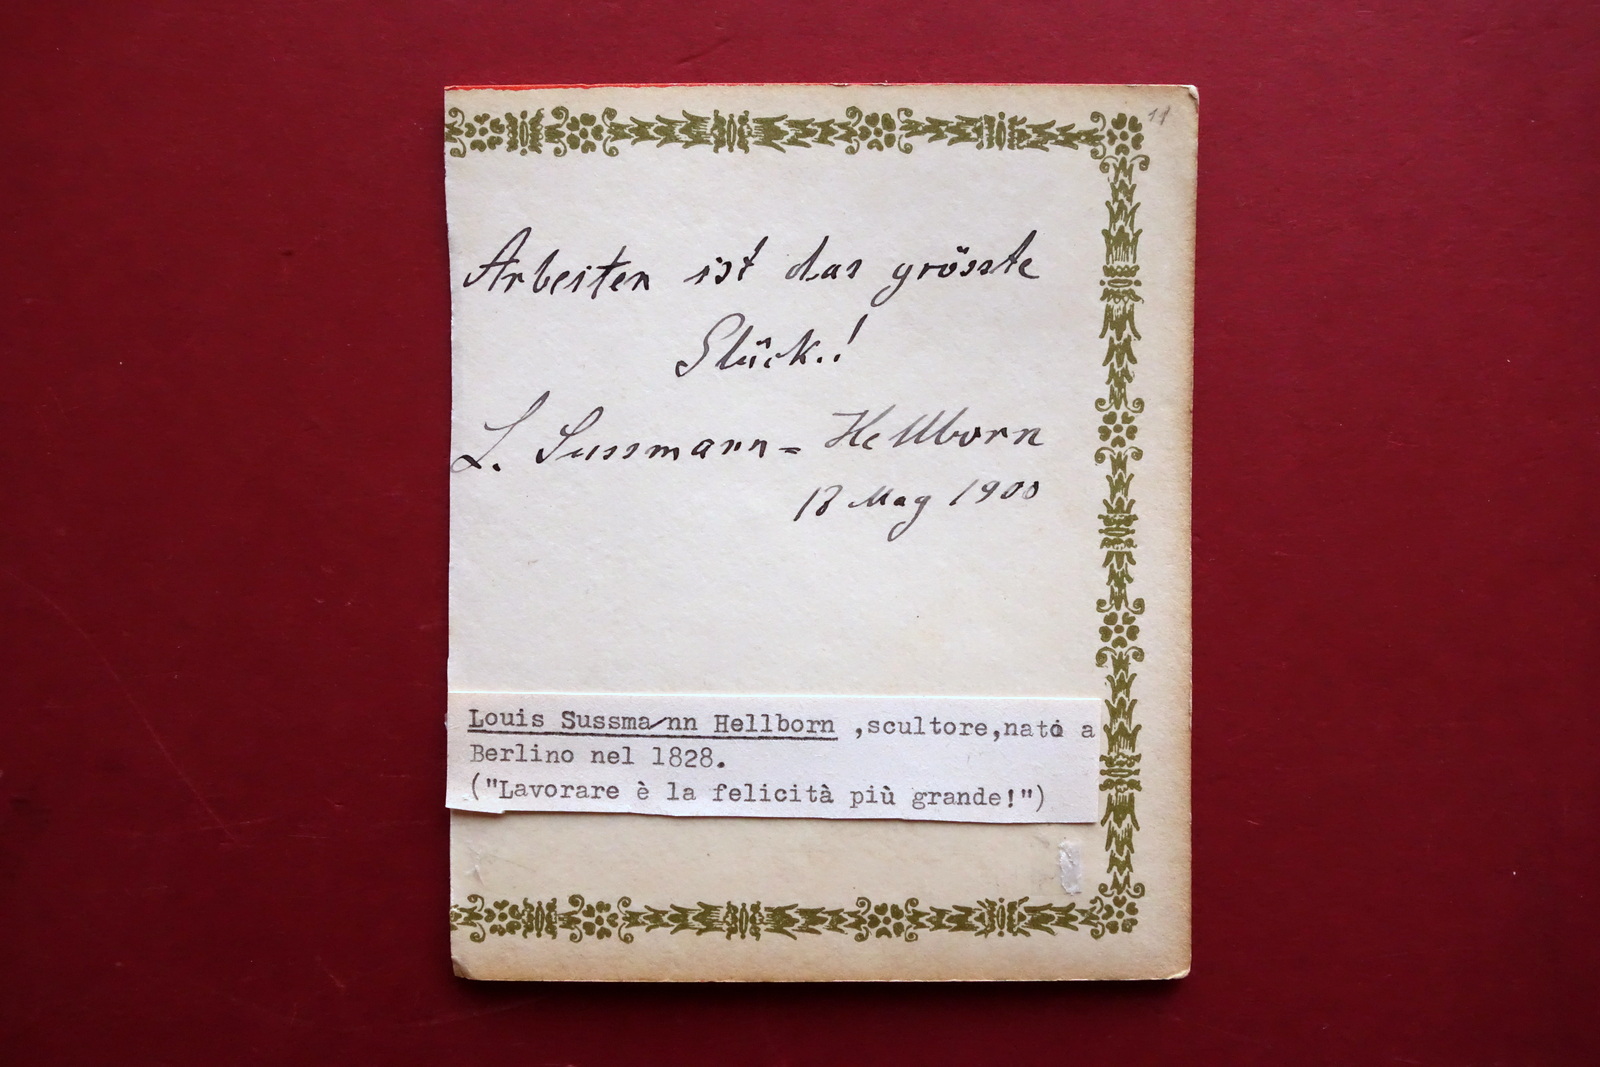 11
Arbeiten ist das grösste
Glück.!
L. Sussmann-Hellborn
18 May 1900
Louis Sussmann Hellborn ,scultore,nato a
Berlino nel 1828.
("Lavorare è la felicità più grande!")